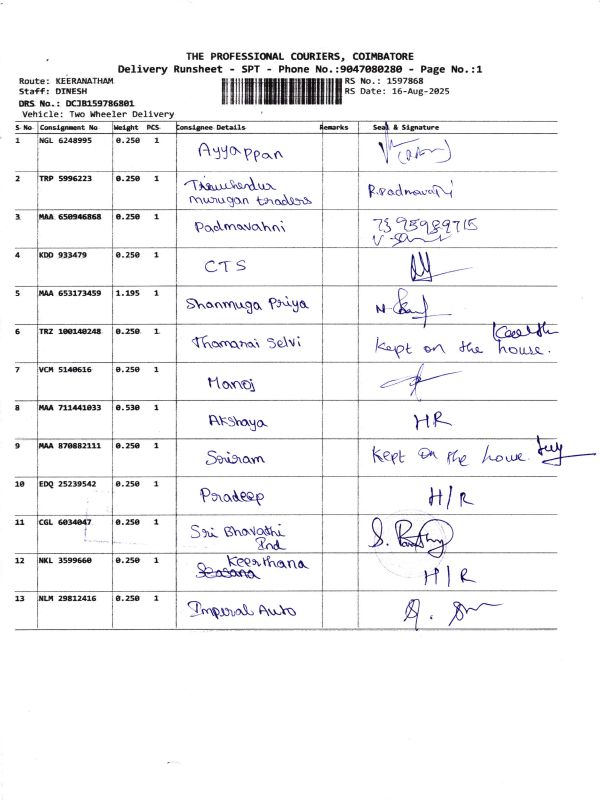 THE PROFESSIONAL COURIERS, COIMBATORE
Delivery Runsheet - SPT - Phone No.:9047080280 - Page No.:1
Route: KEERANATHAM RS No.: 1597868
Staff: DINESH RS Date: 16-Aug-2025
DRS No.: DCJB159786801
Vehicle: Two Wheeler Delivery
S No Consignment No Weight PCS Consignee Details Remarks Seal & Signature
1 NGL 6248995 0.250 1 Ayyappan
2 TRP 5996223 0.250 1 Tiruchendur
murugan traders R.Padmavathi
3 MAA 650946868 0.250 1 Padmavahni 7395989715
4 KDD 933479 0.250 1 CTS
5 MAA 653173459 1.195 1 Shanmuga Priya
6 TRZ 100140248 0.250 1 Thamarai Selvi Kept on the house.
7 VCM 5140616 0.250 1 Manoj
8 MAA 711441033 0.530 1 Akshaya HR
9 MAA 870882111 0.250 1 Sriram Kept on the house
10 EDQ 25239542 0.250 1 Pradeep H/R
11 CGL 6034047 0.250 1 Sri Bhavathi
Ind
12 NKL 3599660 0.250 1 Keerthana H/R
13 NLM 29812416 0.250 1 Imperal Auto